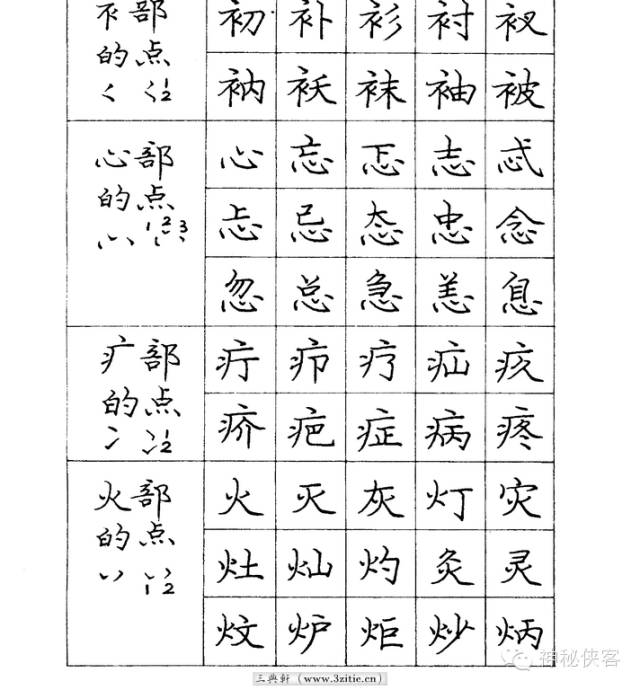 衤部 初 补 衫 衬 衩
的点 衲 袄 袜 袖 被
1 2
心部 心 忘 忑 志 忒
的点 忐 忌 态 忠 念
1 2 3 忽 总 急 恙 息
疒部 疔 疖 疗 疝 疢
的点 疥 疤 症 病 疼
1 2
火部 火 灭 灰 灯 灾
的点 灶 灿 灼 灸 灵
1 2 炆 炉 炬 炒 炳
神秘侠客
三典轩 (www.3zitie.cn)